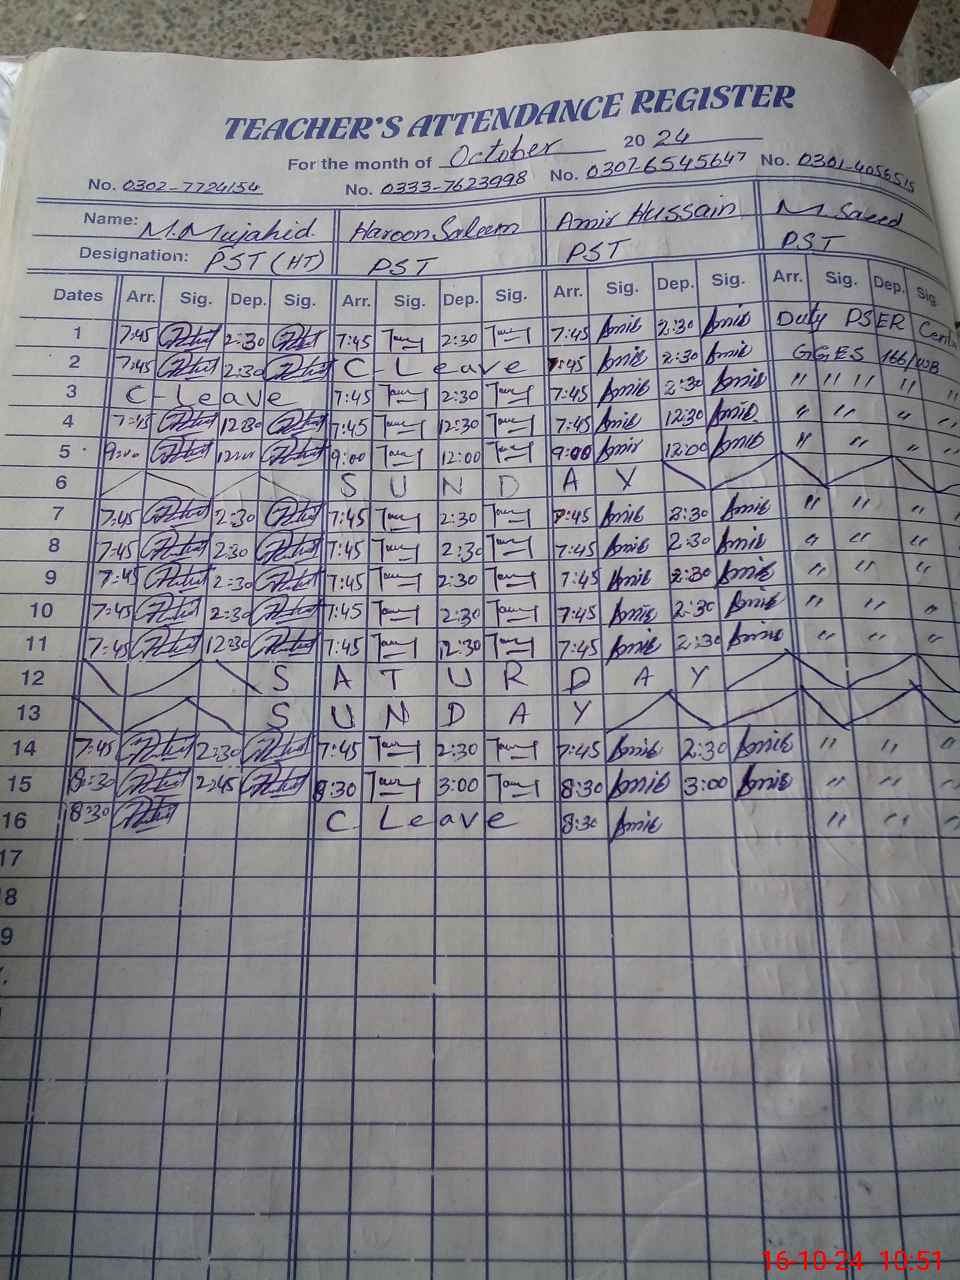 TEACHER'S ATTENDANCE REGISTER
For the month of October 2024
No. 0302-7724154 No. 0333-7623998 No. 0307-6545647 No. 0301-4056515
Name: M.Mujahid Haroon Saleem Amir Hussain M. Saeed
Designation: PST (HT) PST PST PST
Dates Arr. Sig. Dep. Sig. Arr. Sig. Dep. Sig. Arr. Sig. Dep. Sig. Arr. Sig. Dep. Sig.
1 7:45 2:30 7:45 2:30 7:45 Amir 2:30 Amir Duty PSER
2 7:45 2:30 C-Leave 7:45 Amir 2:30 Amir GGES 166/WB
3 C-Leave 7:45 2:30 7:45 Amir 2:30 Amir " " " " "
4 7:45 12:30 7:45 12:30 7:45 Amir 12:30 Amir " " " "
5 9:00 12:00 9:00 12:00 9:00 Amir 12:00 Amir " " " "
6 SUNDAY
7 7:45 2:30 7:45 2:30 7:45 Amir 2:30 Amir " " " "
8 7:45 2:30 7:45 2:30 7:45 Amir 2:30 Amir " " "
9 7:45 2:30 7:45 2:30 7:45 Amir 2:30 Amir " " "
10 7:45 2:30 7:45 2:30 7:45 Amir 2:30 Amir " " "
11 7:45 12:30 7:45 12:30 7:45 Amir 2:30 Amir " " "
12 SATURDAY
13 SUNDAY
14 7:45 2:30 7:45 2:30 7:45 Amir 2:30 Amir " " "
15 8:30 2:45 8:30 3:00 8:30 Amir 3:00 Amir " " "
16 8:30 C Leave 8:30 Amir " " "
17
18
9
16-10-24 10:51